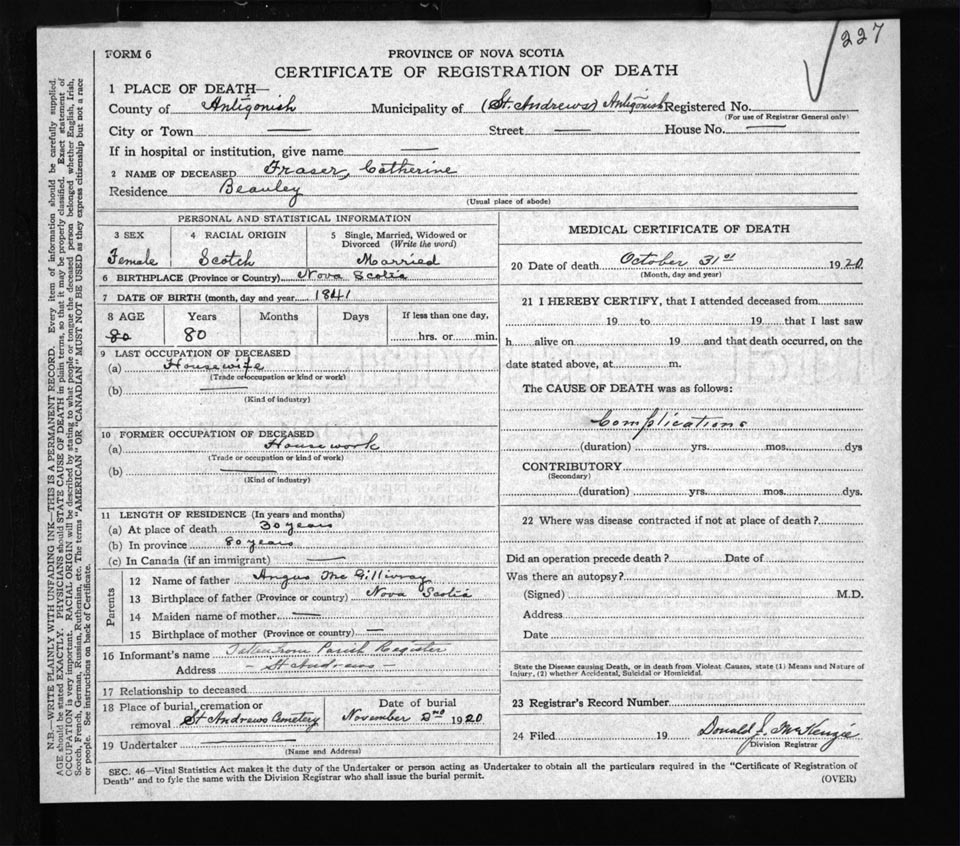 227
FORM 6
PROVINCE OF NOVA SCOTIA
CERTIFICATE OF REGISTRATION OF DEATH
1 PLACE OF DEATH—
County of Antigonish Municipality of (St. Andrews) Antigonish Registered No.
(For use of Registrar General only)
City or Town — Street — House No. —
If in hospital or institution, give name —
2 NAME OF DECEASED Fraser, Catherine
Residence Beauley
(Usual place of abode)
PERSONAL AND STATISTICAL INFORMATION
3 SEX 4 RACIAL ORIGIN 5 Single, Married, Widowed or
Divorced (Write the word)
Female Scotch Married
6 BIRTHPLACE (Province or Country) Nova Scotia
7 DATE OF BIRTH (month, day and year 1841
8 AGE Years Months Days If less than one day,
80 80 hrs. or min.
9 LAST OCCUPATION OF DECEASED
(a) Housewife
(Trade or occupation or kind or work)
(b) —
(Kind of industry)
10 FORMER OCCUPATION OF DECEASED
(a) Housework
(Trade or occupation or kind of work)
(b) —
(Kind of industry)
11 LENGTH OF RESIDENCE (In years and months)
(a) At place of death 30 years
(b) In province 80 years
(c) In Canada (if an immigrant) —
Parents
12 Name of father Angus McGillivray
13 Birthplace of father (Province or country) Nova Scotia
14 Maiden name of mother —
15 Birthplace of mother (Province or country) —
16 Informant's name Taken from Parish Register
Address - St Andrews -
17 Relationship to deceased
18 Place of burial, cremation or Date of burial
removal St Andrews Cemetery November 2nd 1920
19 Undertaker —
(Name and Address)
MEDICAL CERTIFICATE OF DEATH
20 Date of death October 31st 1920
(Month, day and year)
21 I HEREBY CERTIFY, that I attended deceased from
19 to 19 that I last saw
h alive on 19 and that death occurred, on the
date stated above, at m.
The CAUSE OF DEATH was as follows:
Complications
(duration) yrs. mos. dys
CONTRIBUTORY
(Secondary)
(duration) yrs. mos. dys.
22 Where was disease contracted if not at place of death?
Did an operation precede death? Date of
Was there an autopsy?
(Signed) M.D.
Address
Date
State the Disease causing Death, or in death from Violent Causes, state (1) Means and Nature of
Injury, (2) whether Accidental, Suicidal or Homicidal.
23 Registrar's Record Number
24 Filed 19 Donald J. McKenzie
Division Registrar
SEC. 46—Vital Statistics Act makes it the duty of the Undertaker or person acting as Undertaker to obtain all the particulars required in the "Certificate of Registration of
Death" and to fyle the same with the Division Registrar who shall issue the burial permit.
(OVER)
N.B.—WRITE PLAINLY WITH UNFADING INK—THIS IS A PERMANENT RECORD. Every item of information should be carefully supplied.
AGE should be stated EXACTLY. PHYSICIANS should STATE CAUSE OF DEATH in plain terms, so that it may be properly classified. Exact statement of
OCCUPATION is very important. RACIAL ORIGIN will be described by stating to what people or tongue the deceased person belonged whether English, Irish,
Scotch, French, German, Russian, Ruthenian, etc. The terms "AMERICAN" OR "CANADIAN" MUST NOT BE USED as they express citizenship but not a race
or people. See instructions on back of Certificate.